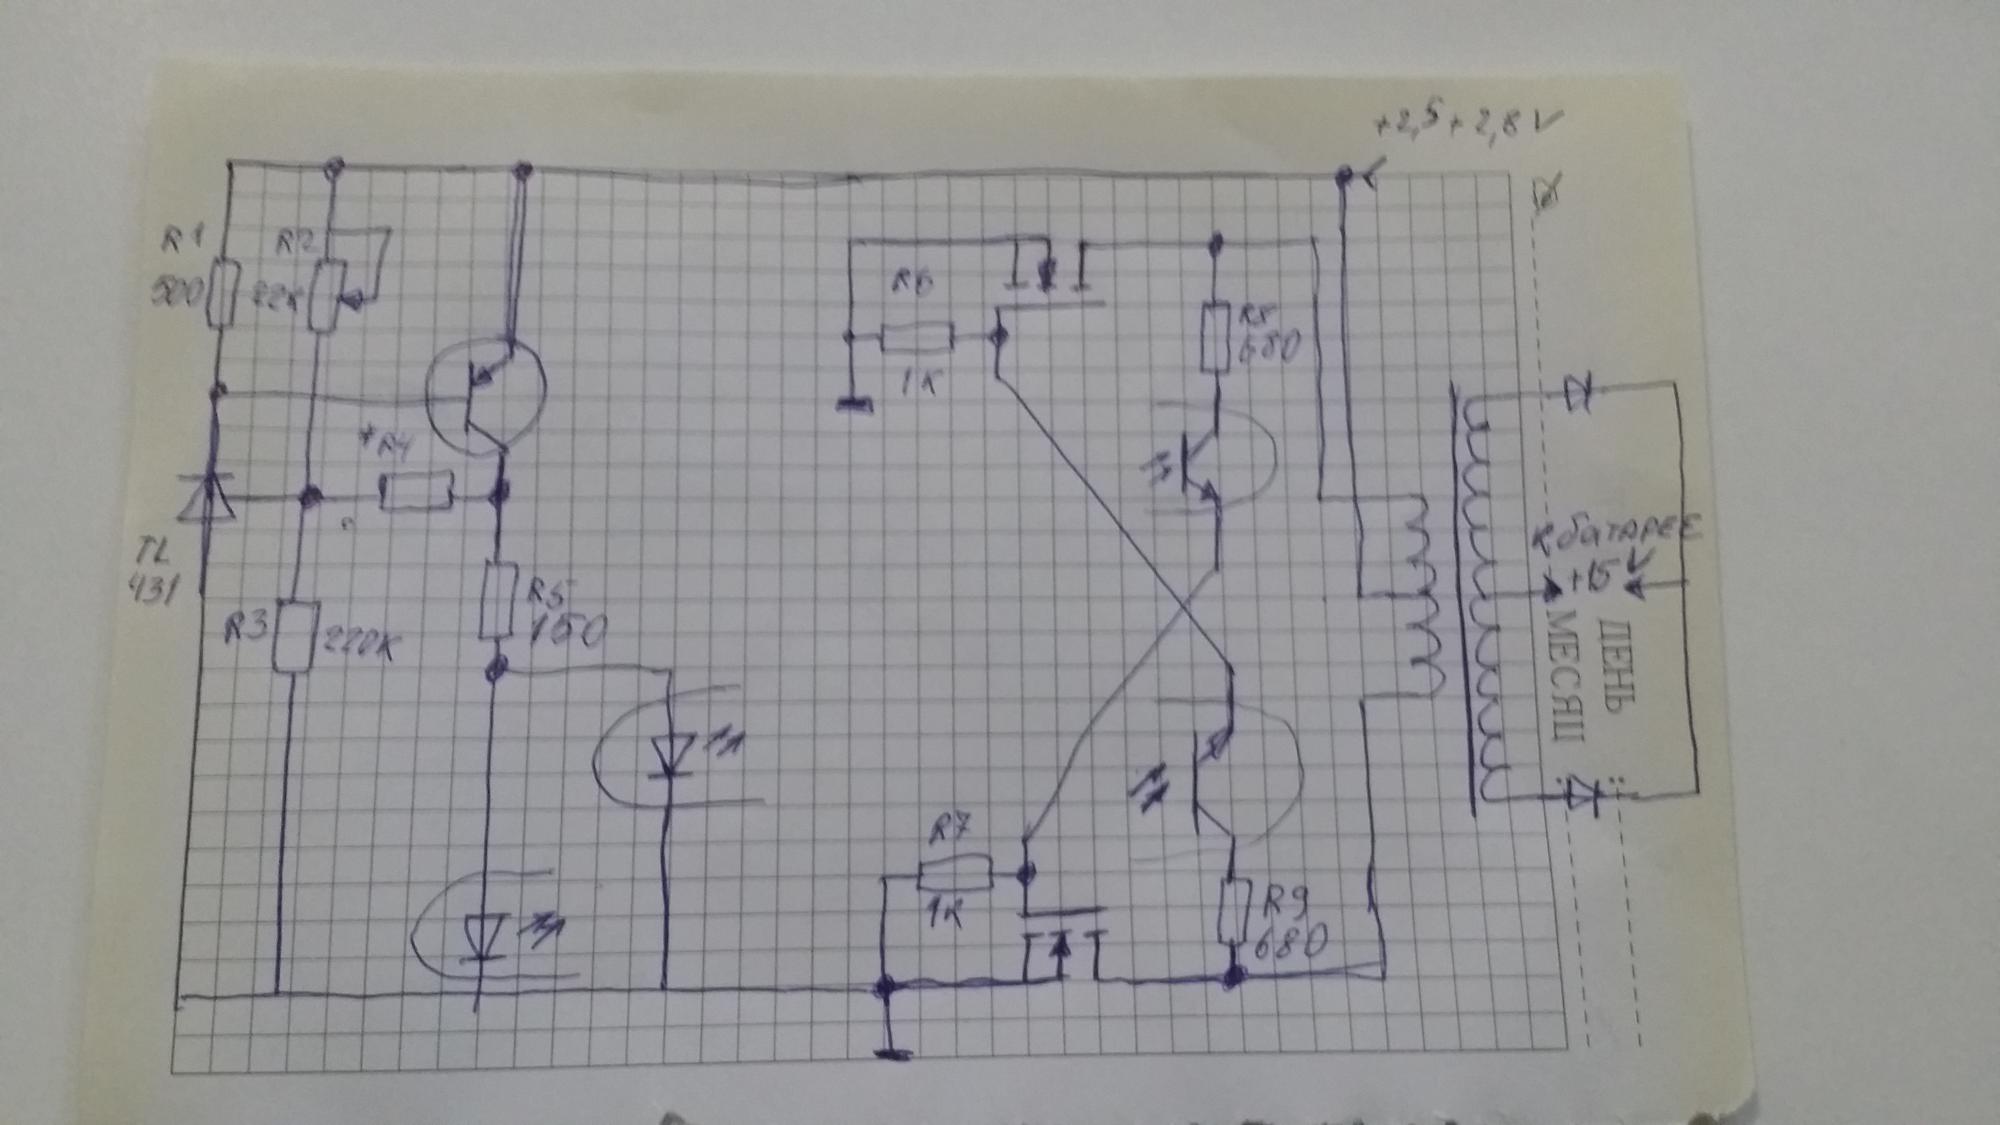 +2,5 + 2,8 V
R1
500
R2
22K
R6
1K
R8
680
*R4
TL
431
R3
220K
R5
150
К батарее
+15 V
МЕСЯЦ
ДЕНЬ
R7
1K
R9
680